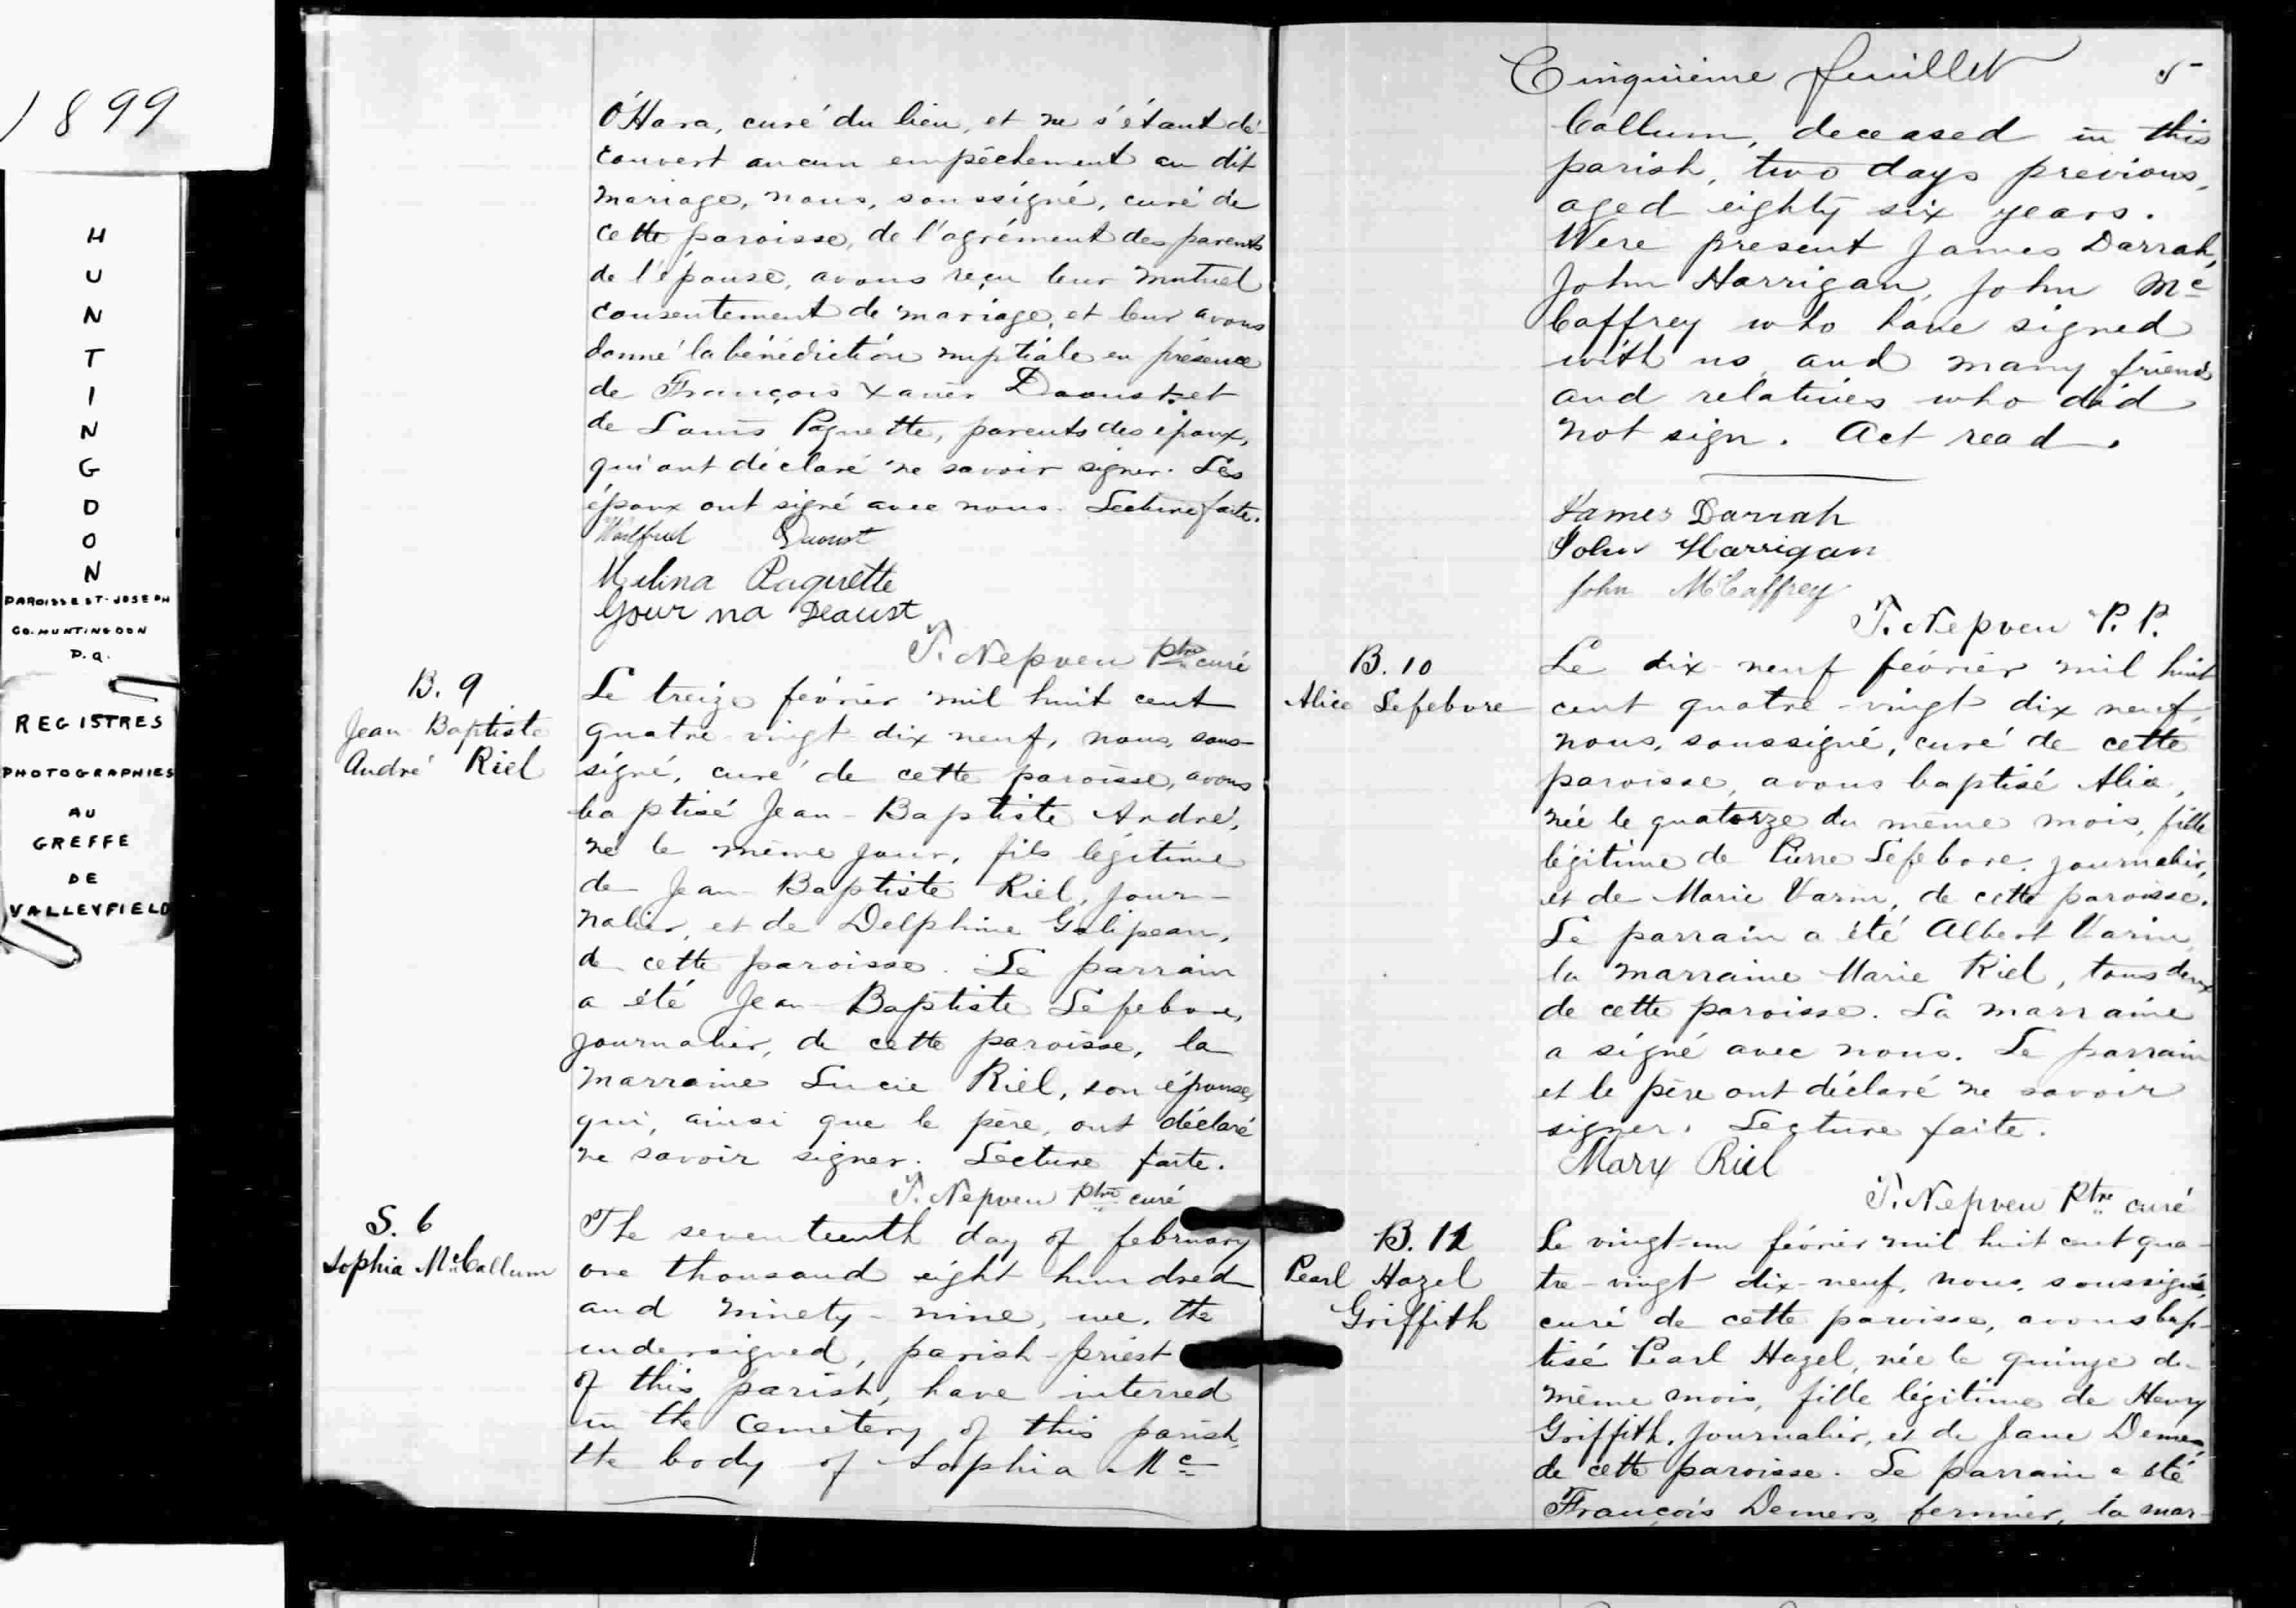 1899
H
U
N
T
I
N
G
D
O
N
PAROISSE ST-JOSEPH
CO. HUNTINGDON
P.Q.
REGISTRES
PHOTOGRAPHIES
AU
GREFFE
DE
VALLEYFIELD
O'Hara, curé du lieu, et ne s'étant dé-
couvert aucun empêchement au dit
mariage, nous, soussigné, curé de
cette paroisse, de l'agrément des parents
de l'épouse, avons reçu leur mutuel
consentement de mariage, et leur avons
donné la bénédiction nuptiale en présence
de François Xavier Daoust et
de Louis Paquette, parents des époux,
qui ont déclaré ne savoir signer. Les
époux ont signé avec nous. Lecture faite.
Wilfrid Daoust
Melina Paquette
Daoust
T. Nepveu Ptre curé
B. 9
Jean-Baptiste
André Riel
Le treize février mil huit cent
quatre-vingt-dix neuf, nous, sous-
signé, curé de cette paroisse, avons
baptisé Jean-Baptiste André,
né le même jour, fils légitime
de Jean-Baptiste Riel, jour-
nalier, et de Delphine Galipeau,
de cette paroisse. Le parrain
a été Jean-Baptiste Lefebvre,
journalier, de cette paroisse, la
marraine Lucie Riel, son épouse,
qui, ainsi que le père, ont déclaré
ne savoir signer. Lecture faite.
T. Nepveu Ptre curé
S. 6
Sophia McCallum
The seventeenth day of february
one thousand eight hundred
and ninety-nine, we, the
undersigned, parish-priest
of this parish, have interred
in the cemetery of this parish,
the body of Sophia Mc
Cinquième feuillet 5
Callum, deceased in this
parish, two days previous,
aged eighty six years.
Were present James Darrah,
John Harrigan, John Mc
Caffrey who have signed
with us and many friends
and relatives who did
not sign. Act read.
James Darrah
John Harrigan
John McCaffrey
T. Nepveu P. P.
B. 10
Alice Lefebvre
Le dix-neuf février mil huit
cent quatre-vingt dix neuf,
nous, soussigné, curé de cette
paroisse, avons baptisé Alice,
née le quatorze du même mois, fille
légitime de Pierre Lefebvre, journalier,
et de Marie Varin, de cette paroisse.
Le parrain a été Albert Varin
la marraine Marie Riel, tous deux
de cette paroisse. La marraine
a signé avec nous. Le parrain
et le père ont déclaré ne savoir
signer. Lecture faite.
Mary Riel
T. Nepveu Ptre curé
B. 11
Pearl Hazel
Griffith
Le vingt-un février mil huit cent qua-
tre-vingt dix-neuf, nous, soussigné,
curé de cette paroisse, avons bap-
tisé Pearl Hazel, née le quinze du
même mois, fille légitime de Henry
Griffith, journalier, et de Jane Demers,
de cette paroisse. Le parrain a été
François Demers, fermier, la mar-